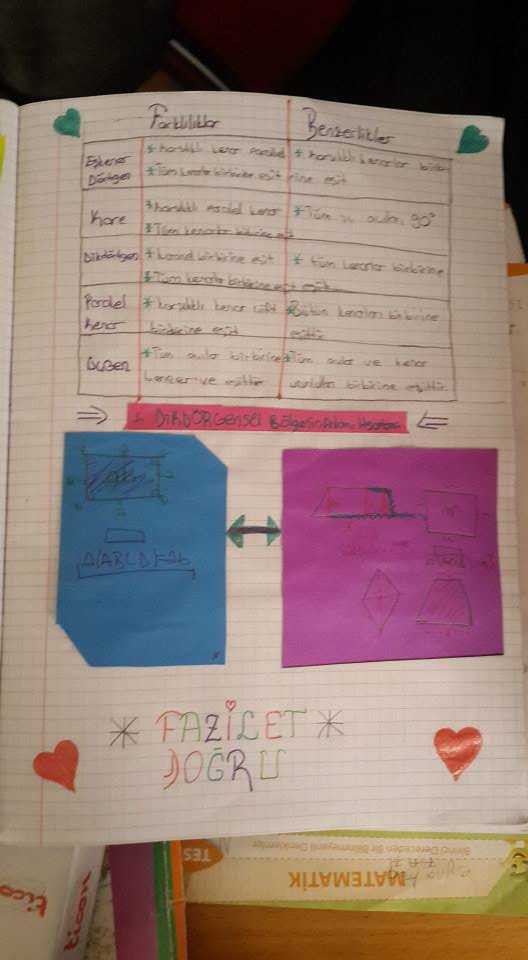 Farklılıklar Benzerlikler
Eşkenar Dörtgen
* Karşılıklı kenar Paralel
* Tüm kenarlar birbirine eşit
* Karşılıklı kenarlar birbirine eşit
Kare
* Karşılıklı Paralel kenar
* Tüm kenarlar birbirine eşit
* Tüm açıları 90°
Dikdörtgen
* birbirine eşit
* Tüm kenarlar birbirine eşit
* Tüm kenarlar birbirine
Paralel Kenar
* Karşılıklı kenar
birbirine eşit
Bütün kenarları birbirine
eşittir
* Tüm açılar birbirine
benzer ve eşittir
* Tüm açılar ve kenar
birbirine eşittir
DİKDÖRGensel Bölgenin Alanı
A(ABCD)=a.b
FAZİLET
DOĞRU
TES
MATEMATİK
Birinci Dereceden Bir Bilinmeyenli Denklemler
ticon
ticon